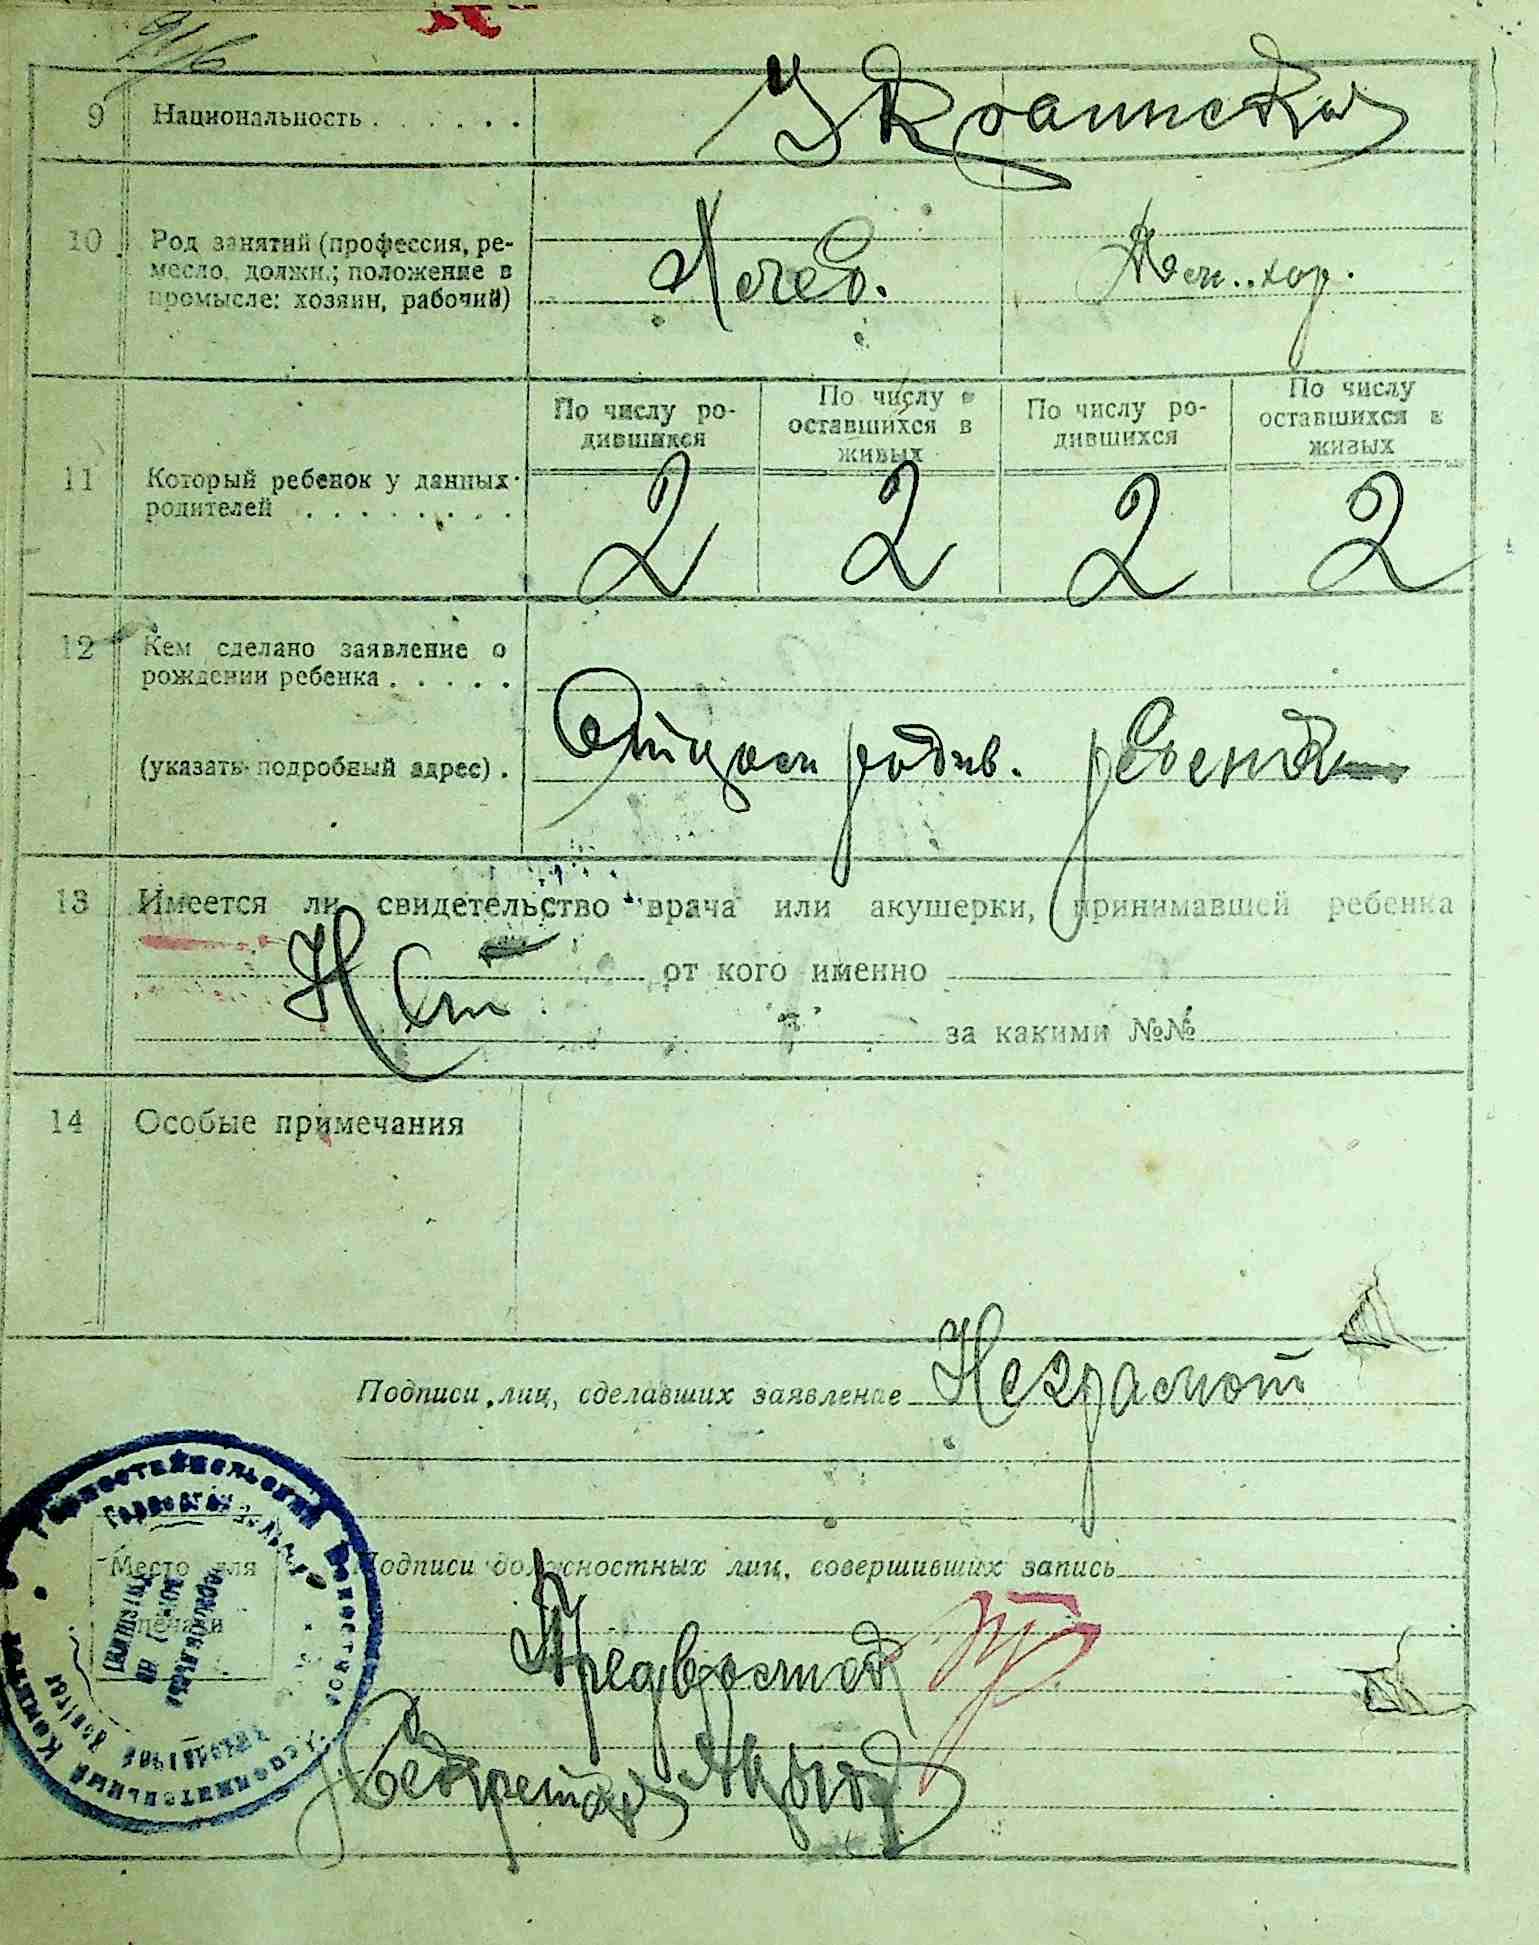 9 Национальность . . . . . . Украинская
10 Род занятий (профессия, ре-
месло, должн.; положение в
промысле: хозяин, рабочий)
Хлеб.
По числу ро-
дившихся
По числу
оставшихся в
живых
По числу ро-
дившихся
По числу
оставшихся в
живых
11 Который ребенок у данных
родителей . . . . . . . .
2 2 2 2
12 Кем сделано заявление о
рождении ребенка . . . . .
(указать подробный адрес) .
Отцом родив. ребенка
13 Имеется ли свидетельство врача или акушерки, принимавшей ребенка
Нет от кого именно
за какими №№
14 Особые примечания
Подписи лиц, сделавших заявление Неграмот
Место для
печати
Подписи должностных лиц, совершивших запись
Секретарь